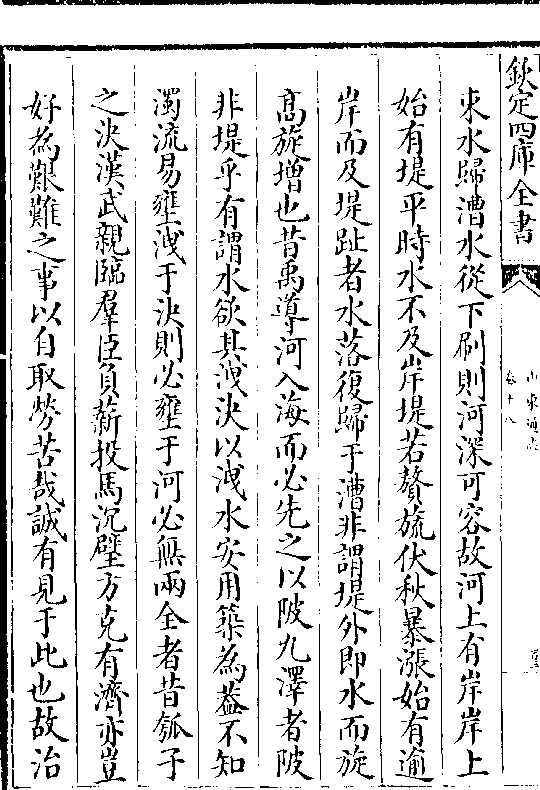 欽定四庫全書
山東通志
卷十八
束水歸漕水從下刷則河深可容故河上有岸岸上
始有堤平時水不及岸堤若贅旒伏秋暴漲始有逾
岸而及堤趾者水落復歸于漕非謂堤外即水而旋
髙旋增也昔禹導河入海而必先之以陂九澤者陂
非堤乎有謂水欲其洩決以洩水安用築為葢不知
濁流易壅洩于決則必壅于河必無兩全者昔瓠子
之決漢武親臨羣臣負薪投馬沉璧方克有濟亦豈
好為艱難之事以自取勞苦哉誠有見于此也故治